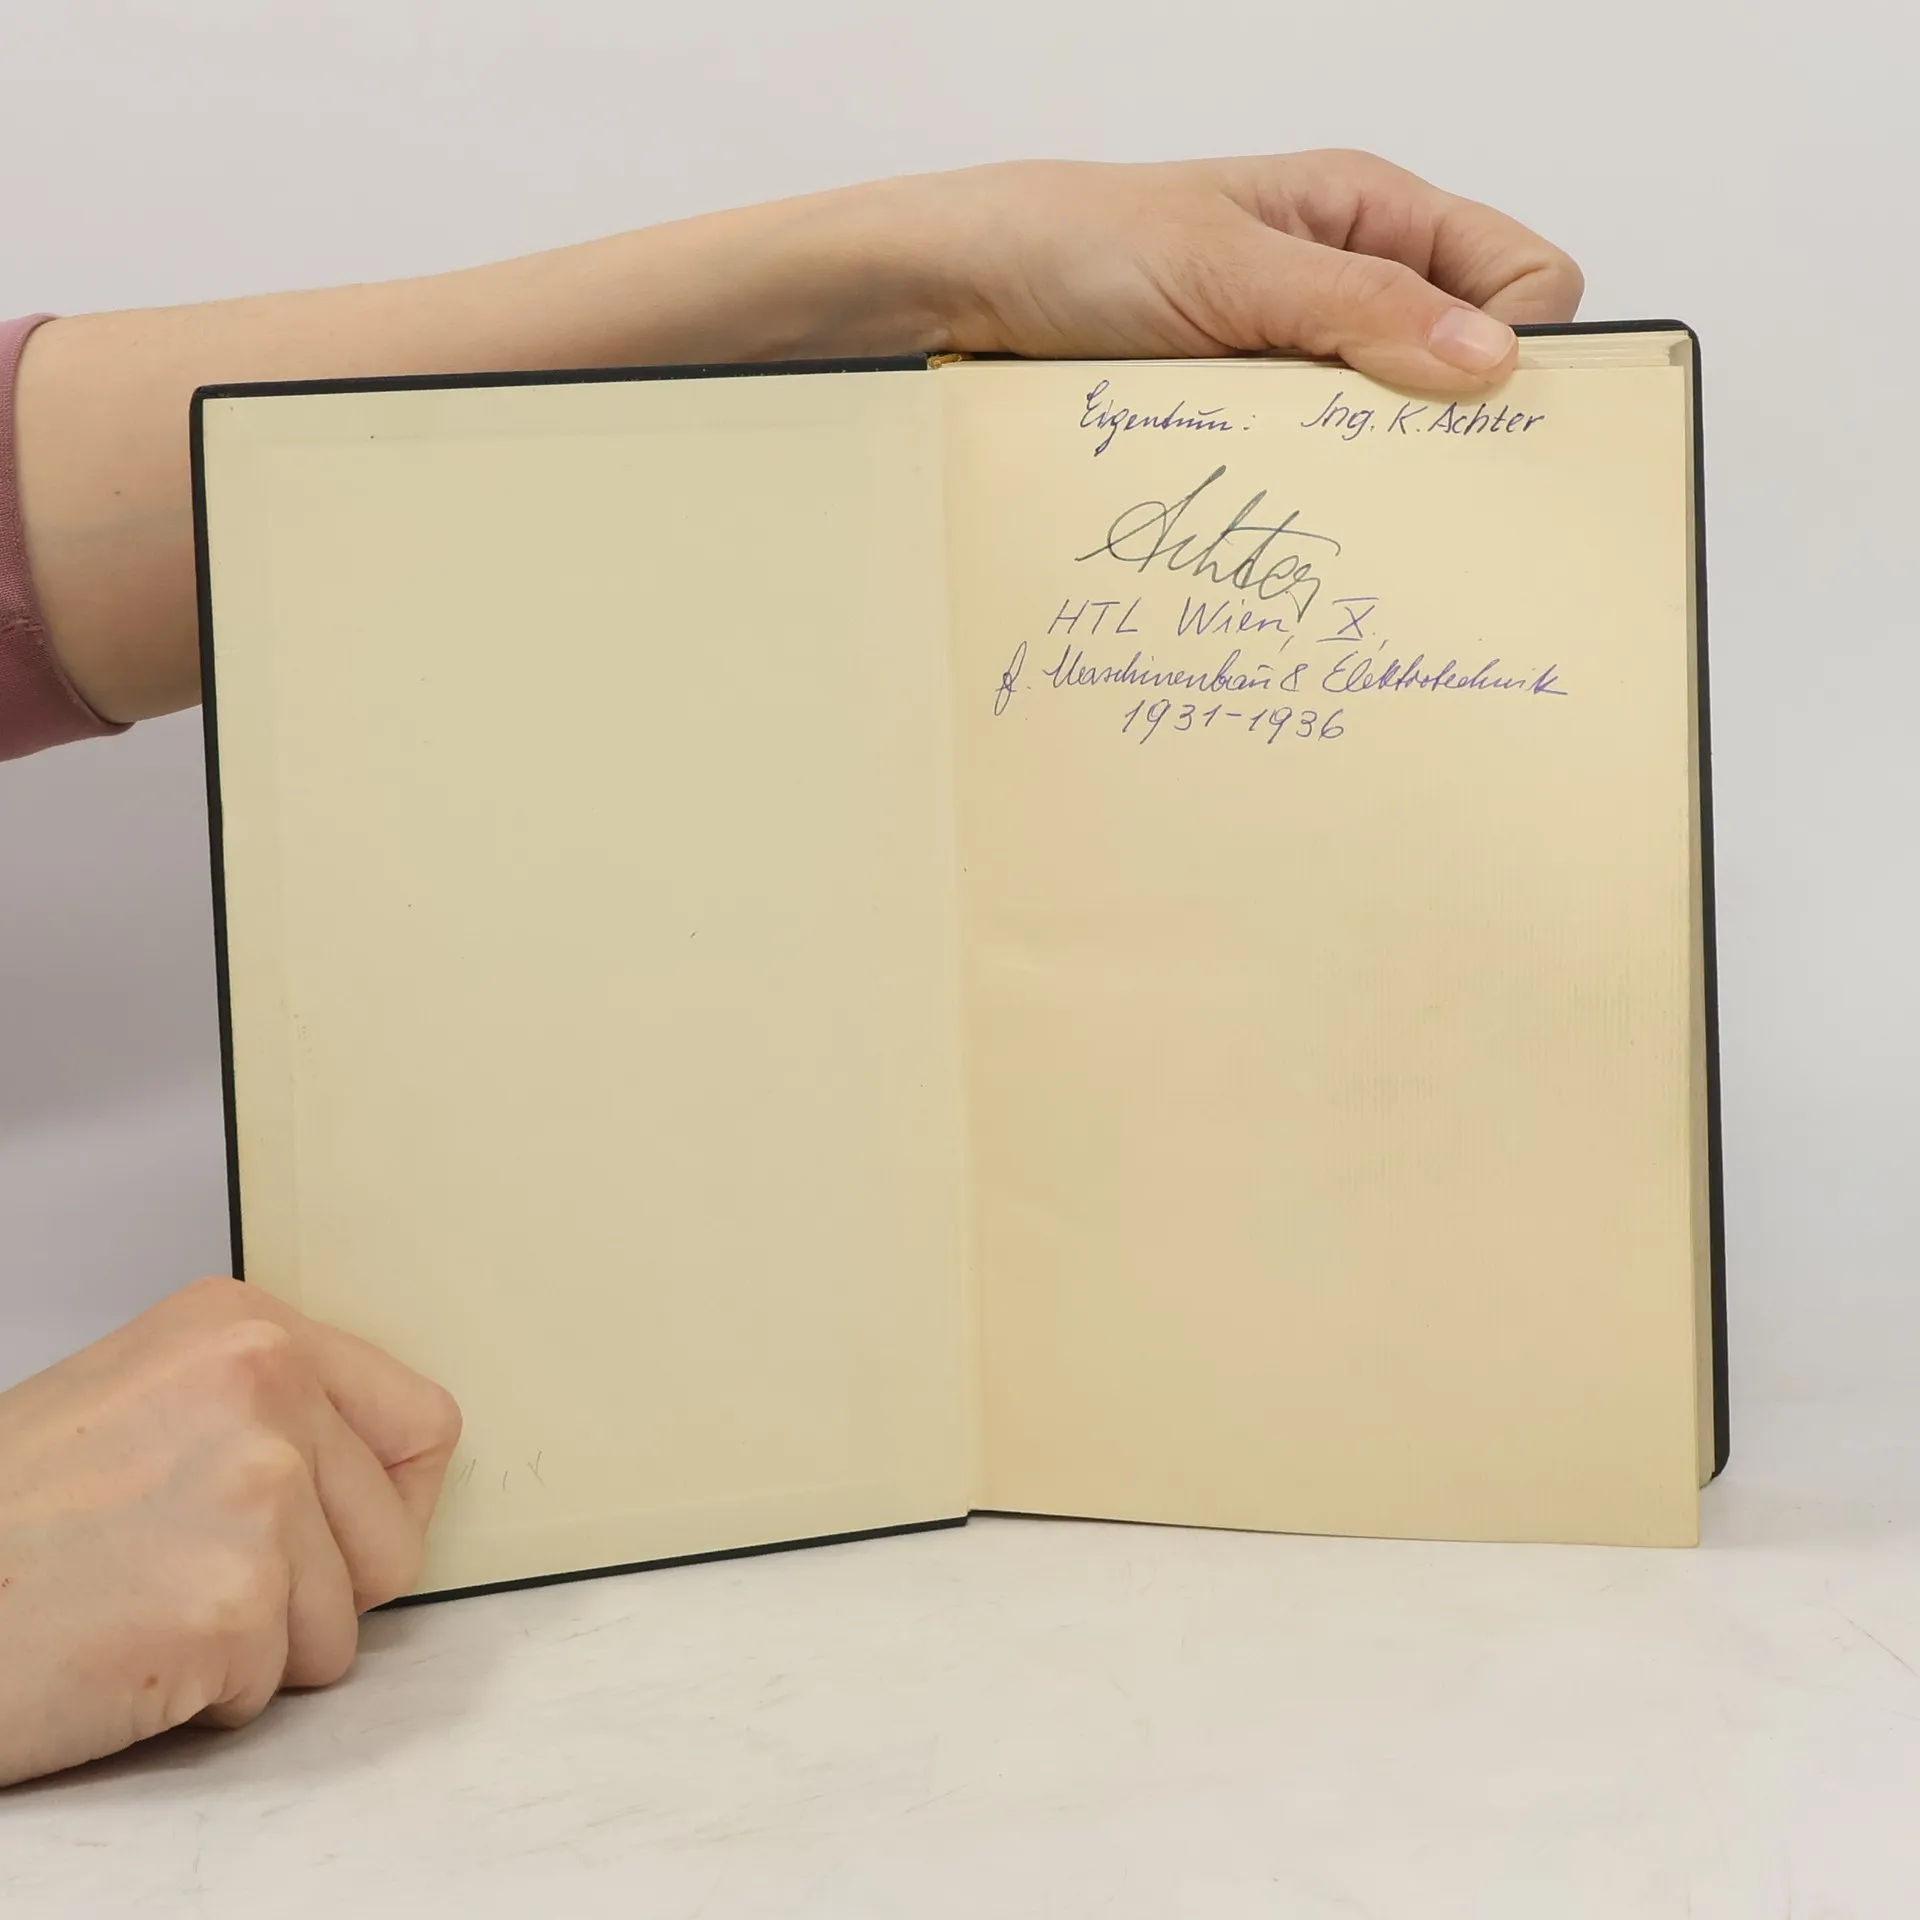 Eigentum: Ing. K. Achter
Achter
HTL Wien, X.,
f. Maschinenbau & Elektrotechnik
1931-1936